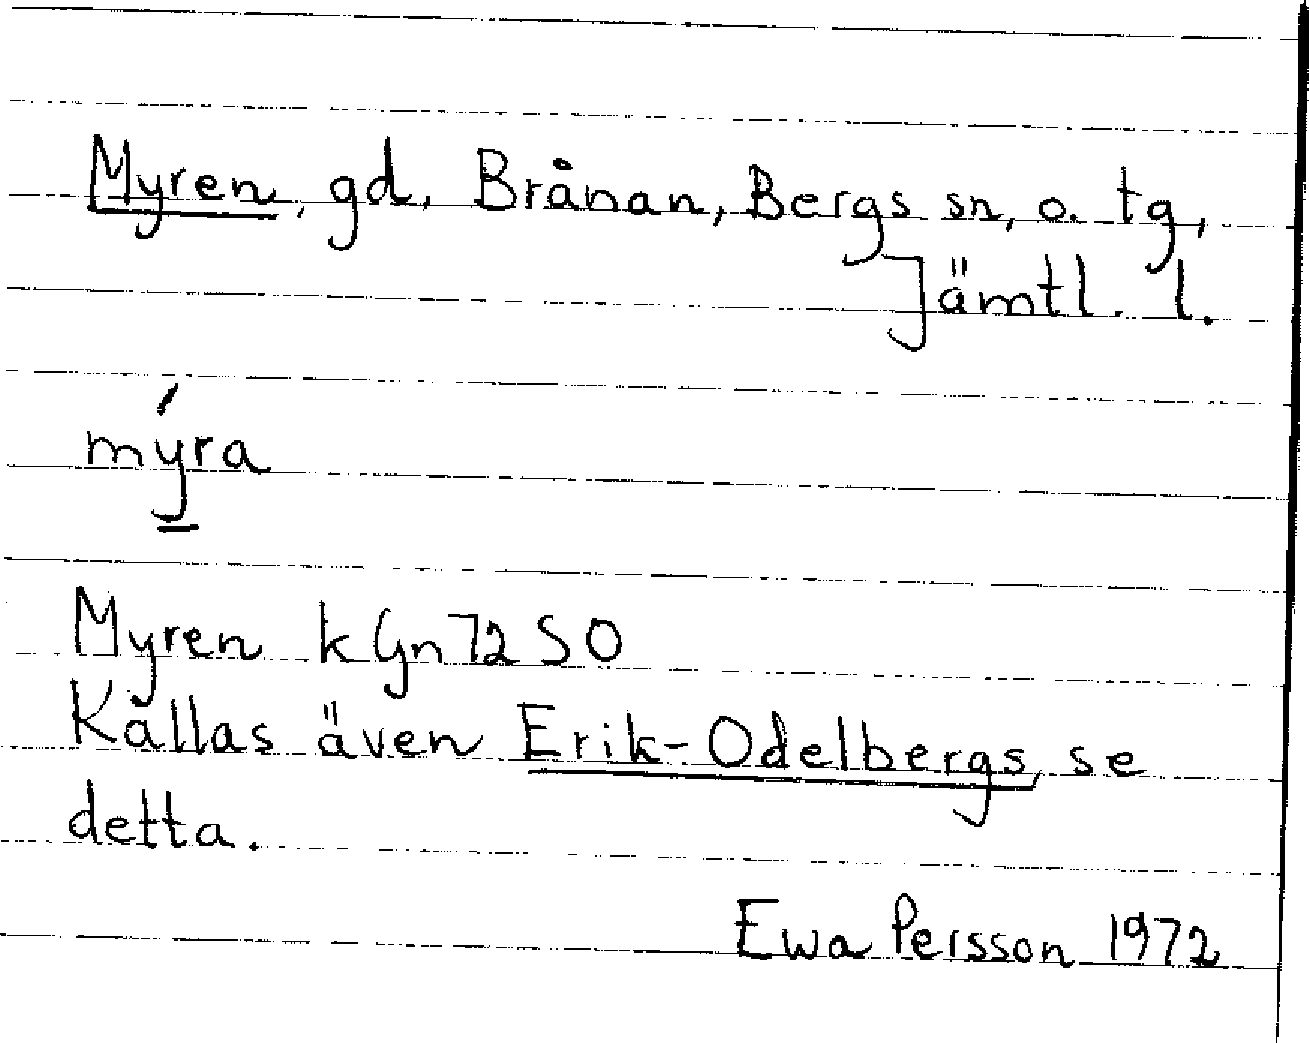 Myren, gd, Brånan, Bergs sn, o. tg,
Jämtl. l.
mýra
Myren kGn72 SO
Kallas även Erik-Odelbergs, se
detta.
Ewa Persson 1972